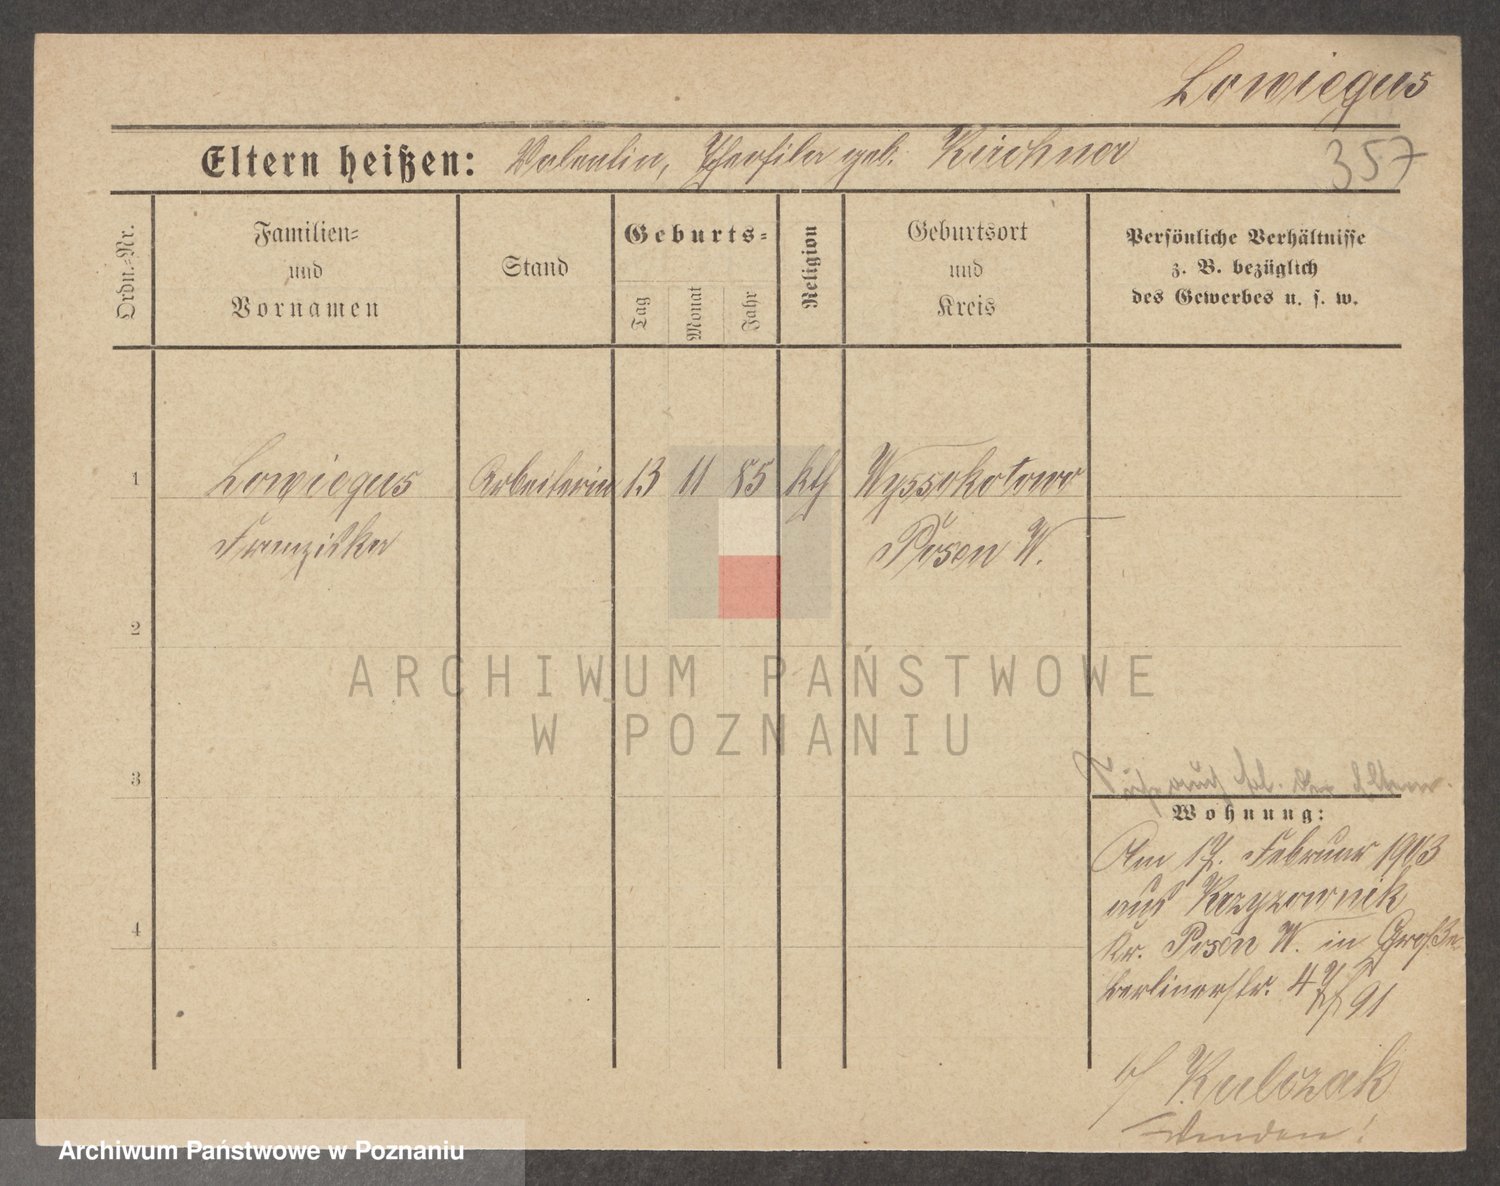 Lowiegus
357
Eltern heißen: Valentin, Theofila geb. Kirchner
Ordn.-Nr.
Familien-
und
Vornamen
Stand
Geburts-
Tag
Monat
Jahr
Religion
Geburtsort
und
Kreis
Persönliche Verhältnisse
z. B. bezüglich
des Gewerbes u. s. w.
1
Lowiegus Arbeiterin 13 11 85 kth Wyssokotowo
Franziska Posen W.
2
ARCHIWUM PAŃSTWOWE
W POZNANIU
3
Wohnung:
Am 17. Februar 1903
aus Krzyzownik
4
Kr. Posen W. in Große
berlinerstr. 47 91
b/ Kulczak
Wenden!
Archiwum Państwowe w Poznaniu